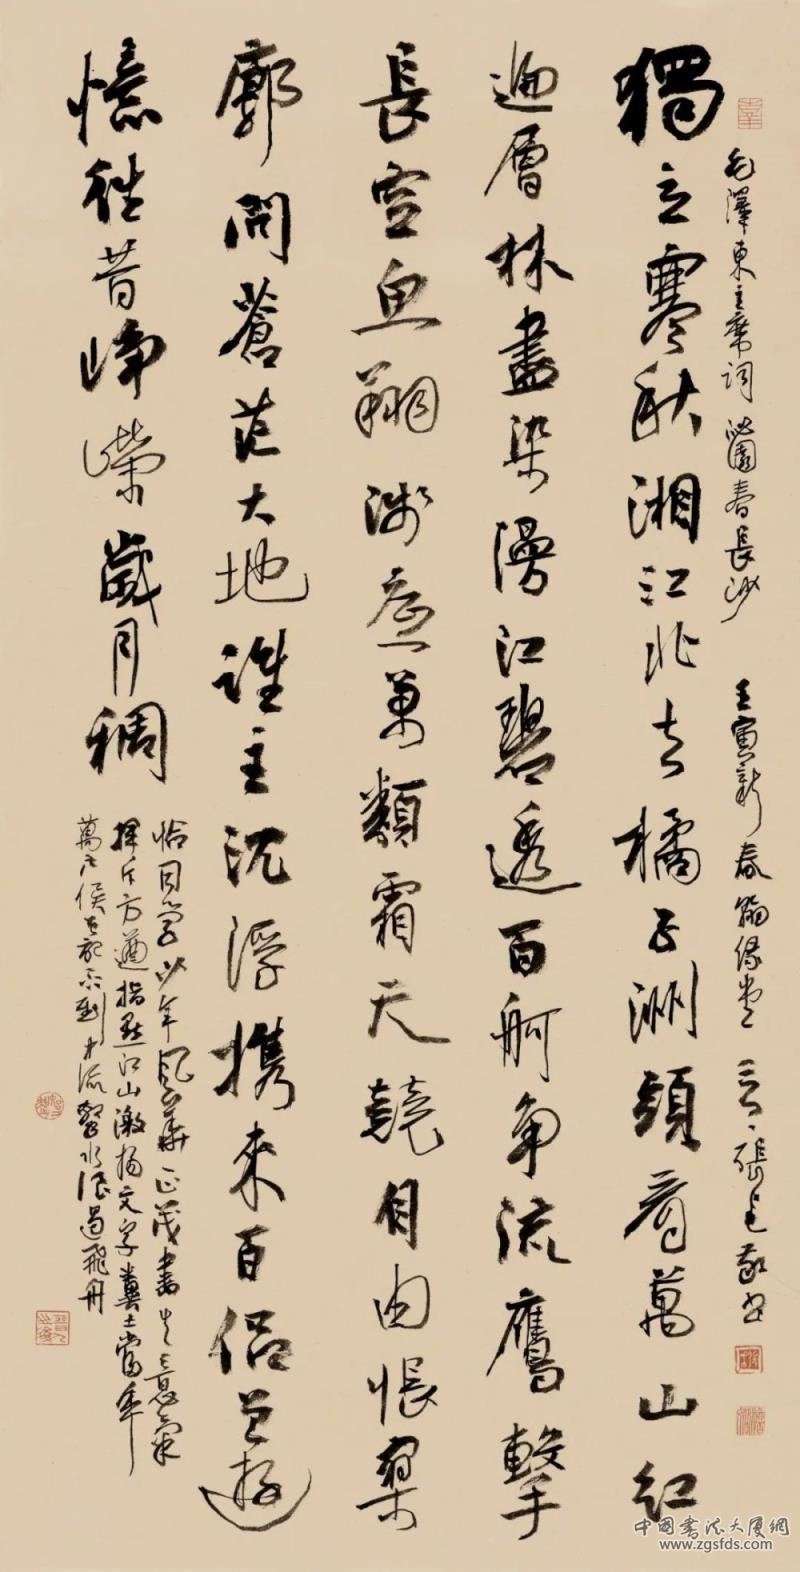 毛澤東主席詞沁園春長沙 壬寅新春
獨立寒秋湘江北去橘子洲頭看萬山紅
遍層林盡染漫江碧透百舸争流鷹擊
長空魚翔淺底萬類霜天競自由悵寥
廓問蒼茫大地誰主沈浮携來百侣曾遊
憶往昔崢嶸歲月稠
恰同學少年風華正茂書生意氣
揮斥方遒指點江山激揚文字糞土當年
萬户侯曾記否到中流擊水浪遏飛舟
中國書法大厦網
www.zgsfds.com